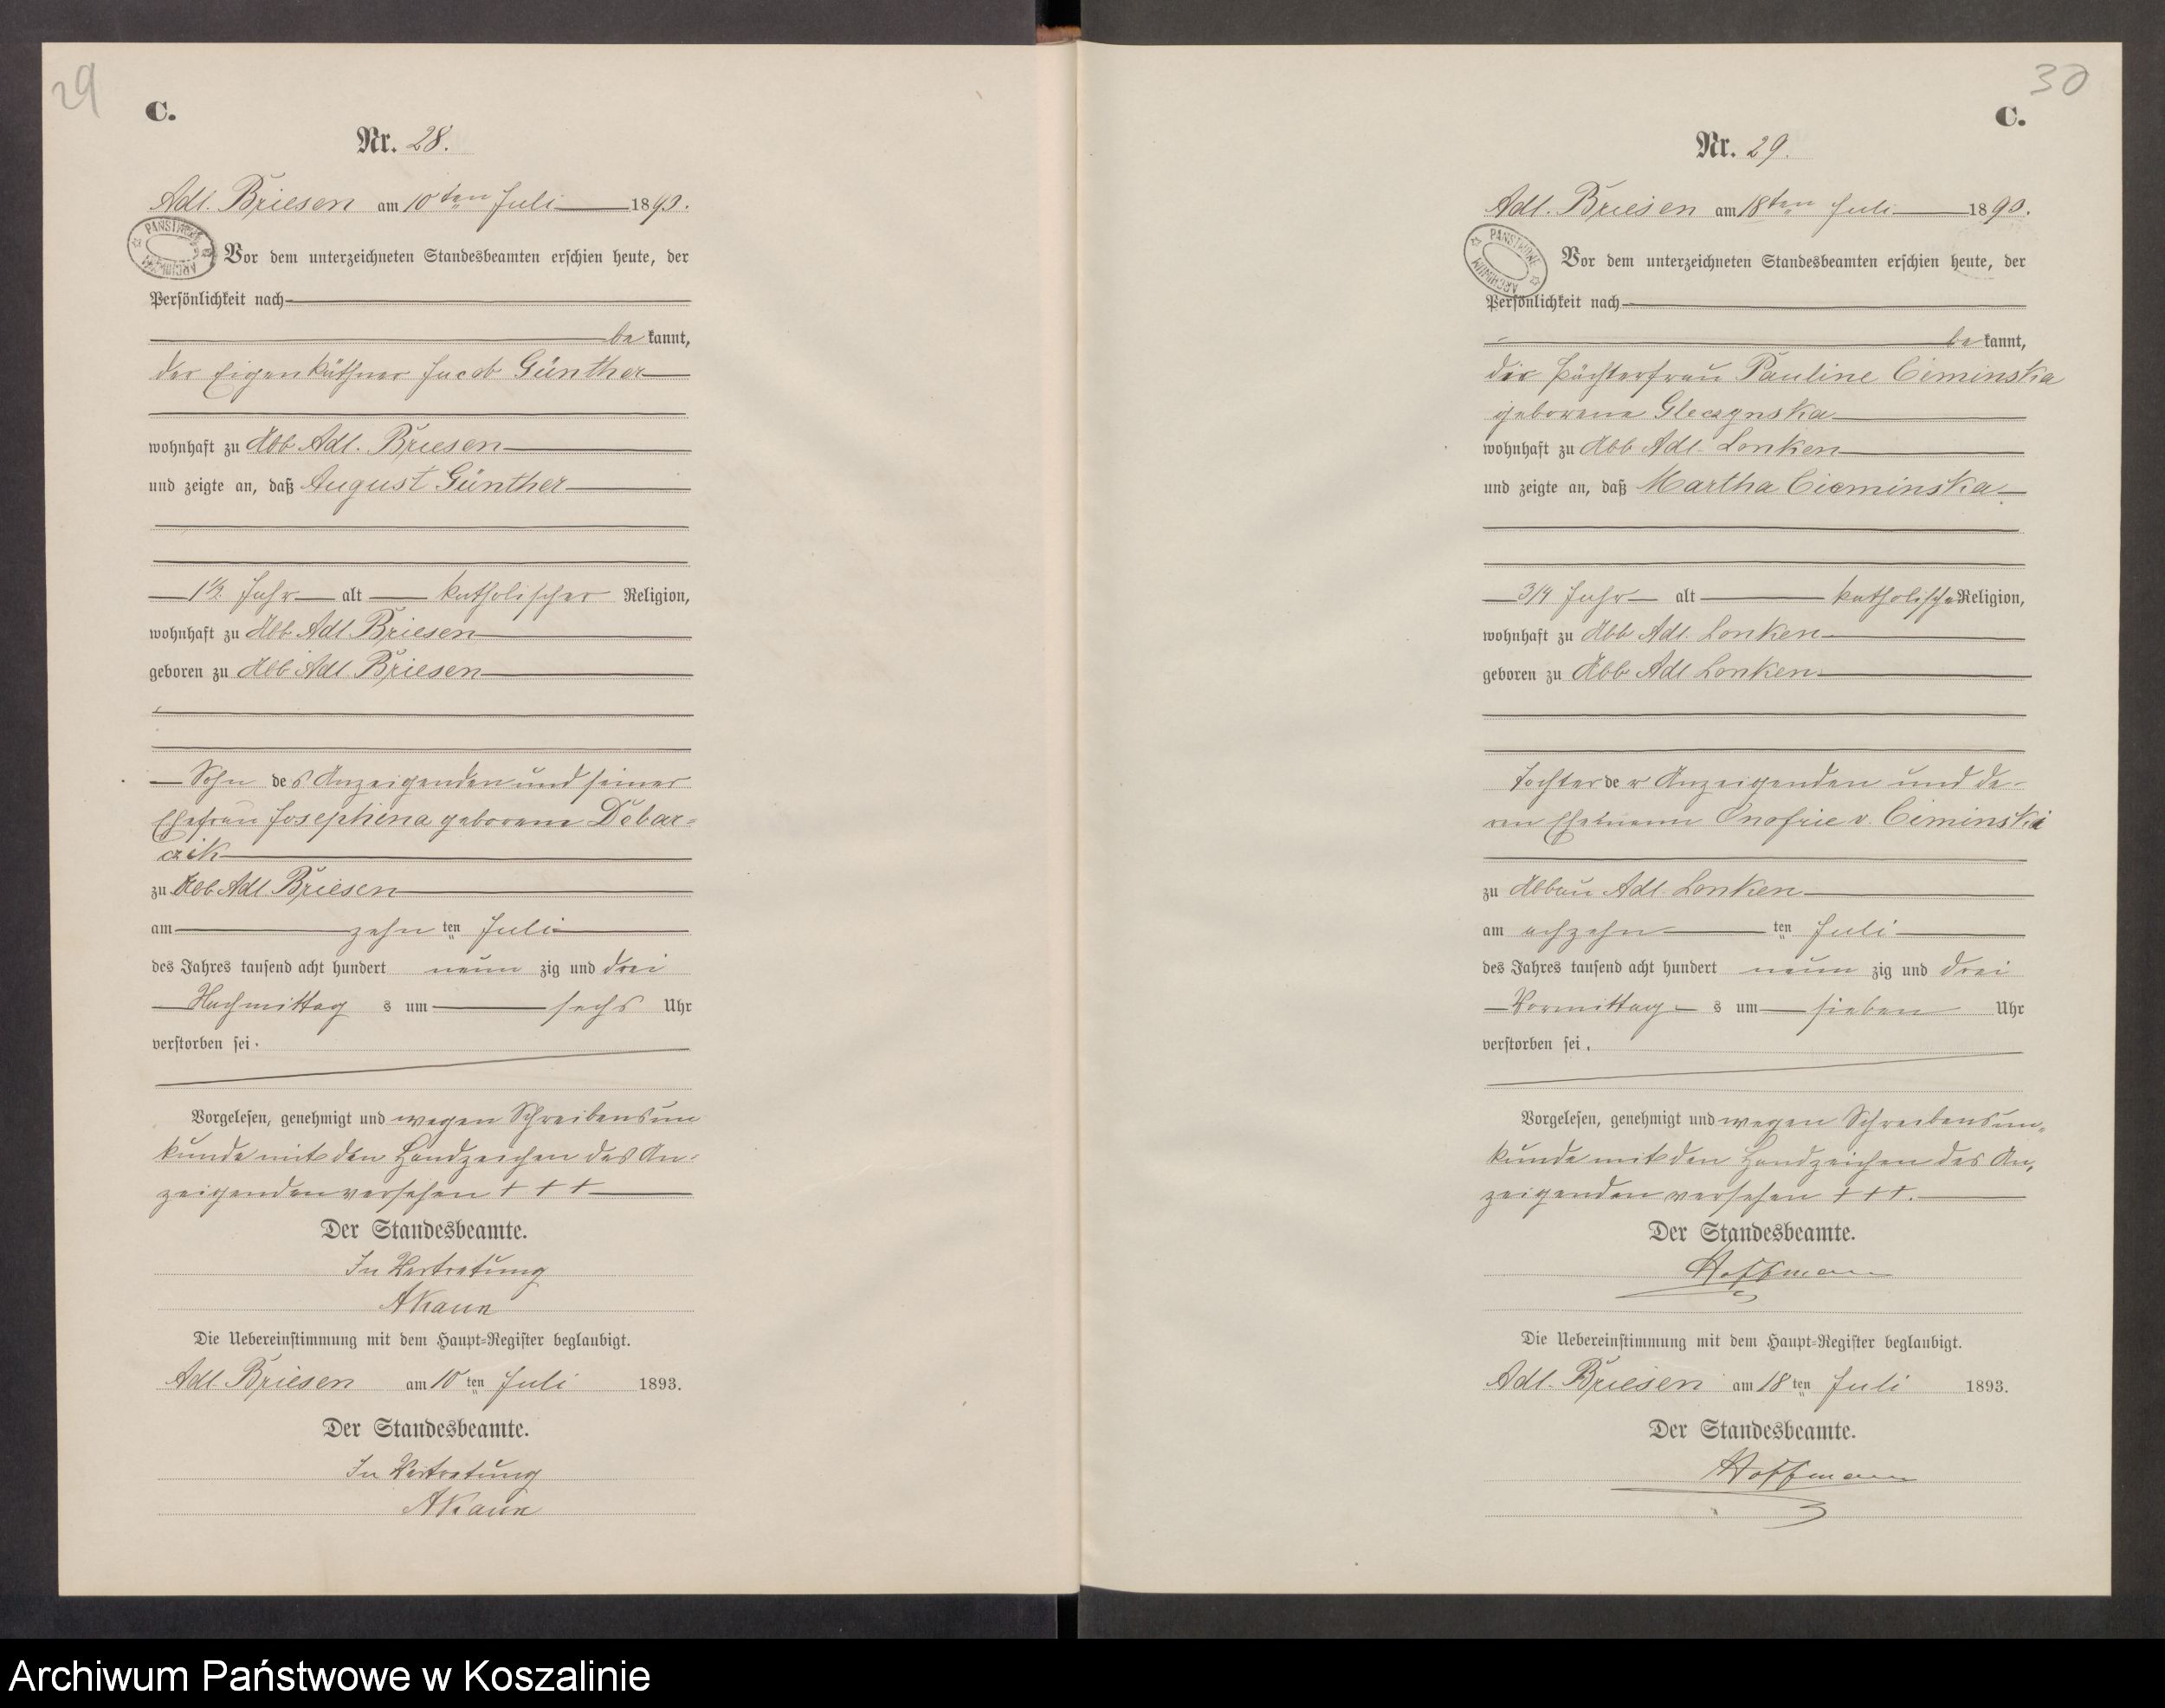 29
C.
Nr. 28.
Adl. Briesen am 10ten Juli 1893.
PAŃSTWOWE ARCHIWUM
Vor dem unterzeichneten Standesbeamten erschien heute, der
Persönlichkeit nach
be kannt,
der Eigenkäthner Jacob Günther
wohnhaft zu Abb Adl. Briesen
und zeigte an, daß August Günther
1½ Jahr alt katholischer Religion,
wohnhaft zu Abb Adl. Briesen
geboren zu Abb Adl. Briesen
Sohn des Anzeigenden und seiner
Ehefrau Josephina geborene Debar=
czik
zu Abb Adl. Briesen
am zehn ten Juli
des Jahres tausend acht hundert neun zig und drei
Nachmittag s um sechs Uhr
verstorben sei.
Vorgelesen, genehmigt und wegen Schreibensun
kunde mit den Handzeichen des An=
zeigenden versehen + + +
Der Standesbeamte.
In Vertretung
Die Uebereinstimmung mit dem Haupt=Register beglaubigt.
Adl. Briesen am 10 ten Juli 1893.
Der Standesbeamte.
In Vertretung
30
C.
Nr. 29.
Adl. Briesen am 18ten Juli 1893.
PAŃSTWOWE ARCHIWUM
Vor dem unterzeichneten Standesbeamten erschien heute, der
Persönlichkeit nach
be kannt,
die Pächterfrau Pauline Ciminska
geborene Gleczynska
wohnhaft zu Abb Adl. Lonken
und zeigte an, daß Martha Cieminska
3/4 Jahr alt katholischer Religion,
wohnhaft zu Abb Adl. Lonken
geboren zu Abb Adl Lonken
Tochter der Anzeigenden und de-
ren Ehemann Onofrie v. Ciminski
zu Abbau Adl. Lonken
am achzehn ten Juli
des Jahres tausend acht hundert neun zig und drei
Vormittag s um sieben Uhr
verstorben sei.
Vorgelesen, genehmigt und wegen Schreibensun=
kunde mit den Handzeichen des An=
zeigenden versehen + + +.
Der Standesbeamte.
Hoffmann
Die Uebereinstimmung mit dem Haupt=Register beglaubigt.
Adl. Briesen am 18 ten Juli 1893.
Der Standesbeamte.
Hoffmann
Archiwum Państwowe w Koszalinie